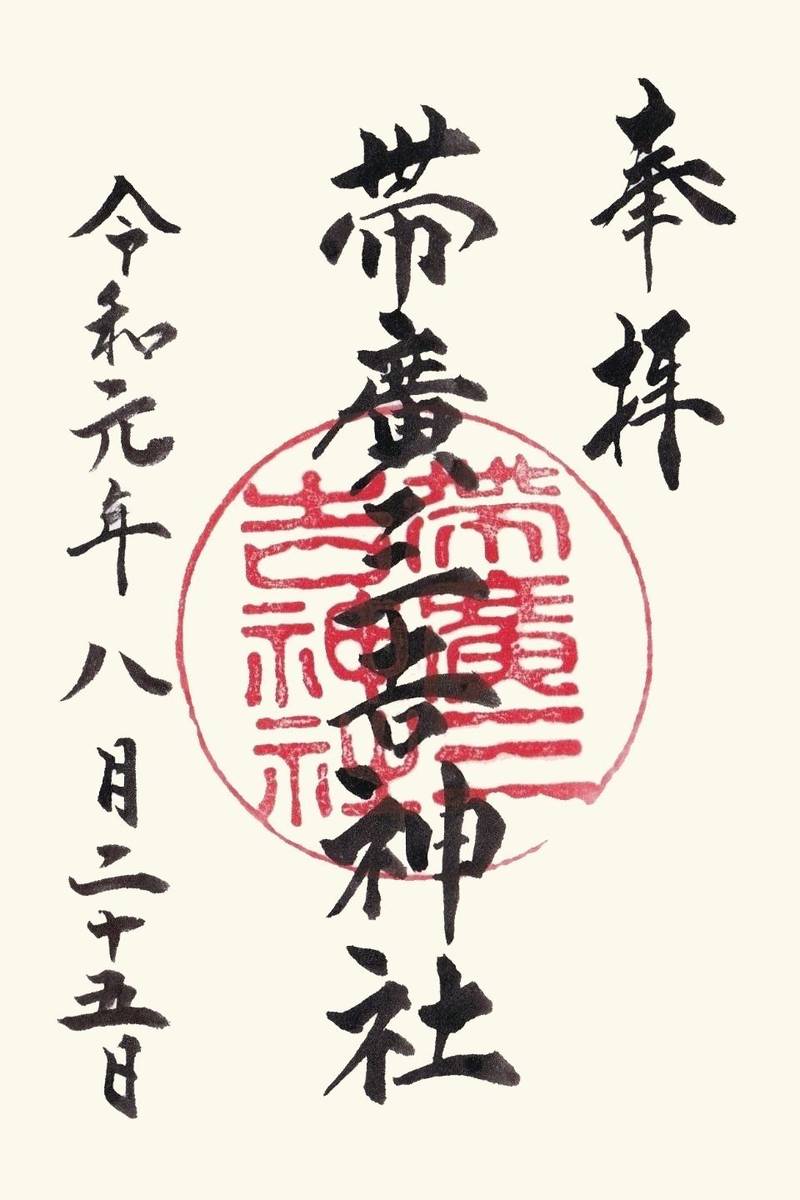 奉拝
帯廣三吉神社
帯廣三
吉神社
令和元年八月二十五日